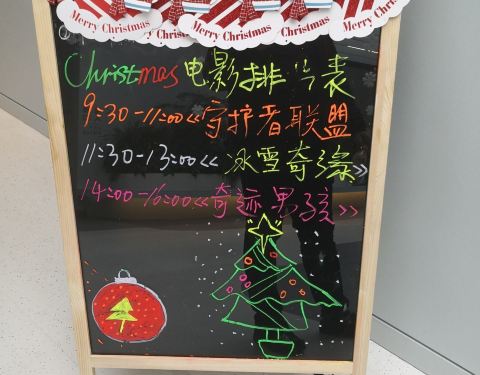 Merry Christmas Merry Christmas Merry Christmas Merry Christmas
Christmas电影排片表
9:30-11:00《守护者联盟
11:30-13:00《冰雪奇缘》
14:00-16:00《奇迹男孩》